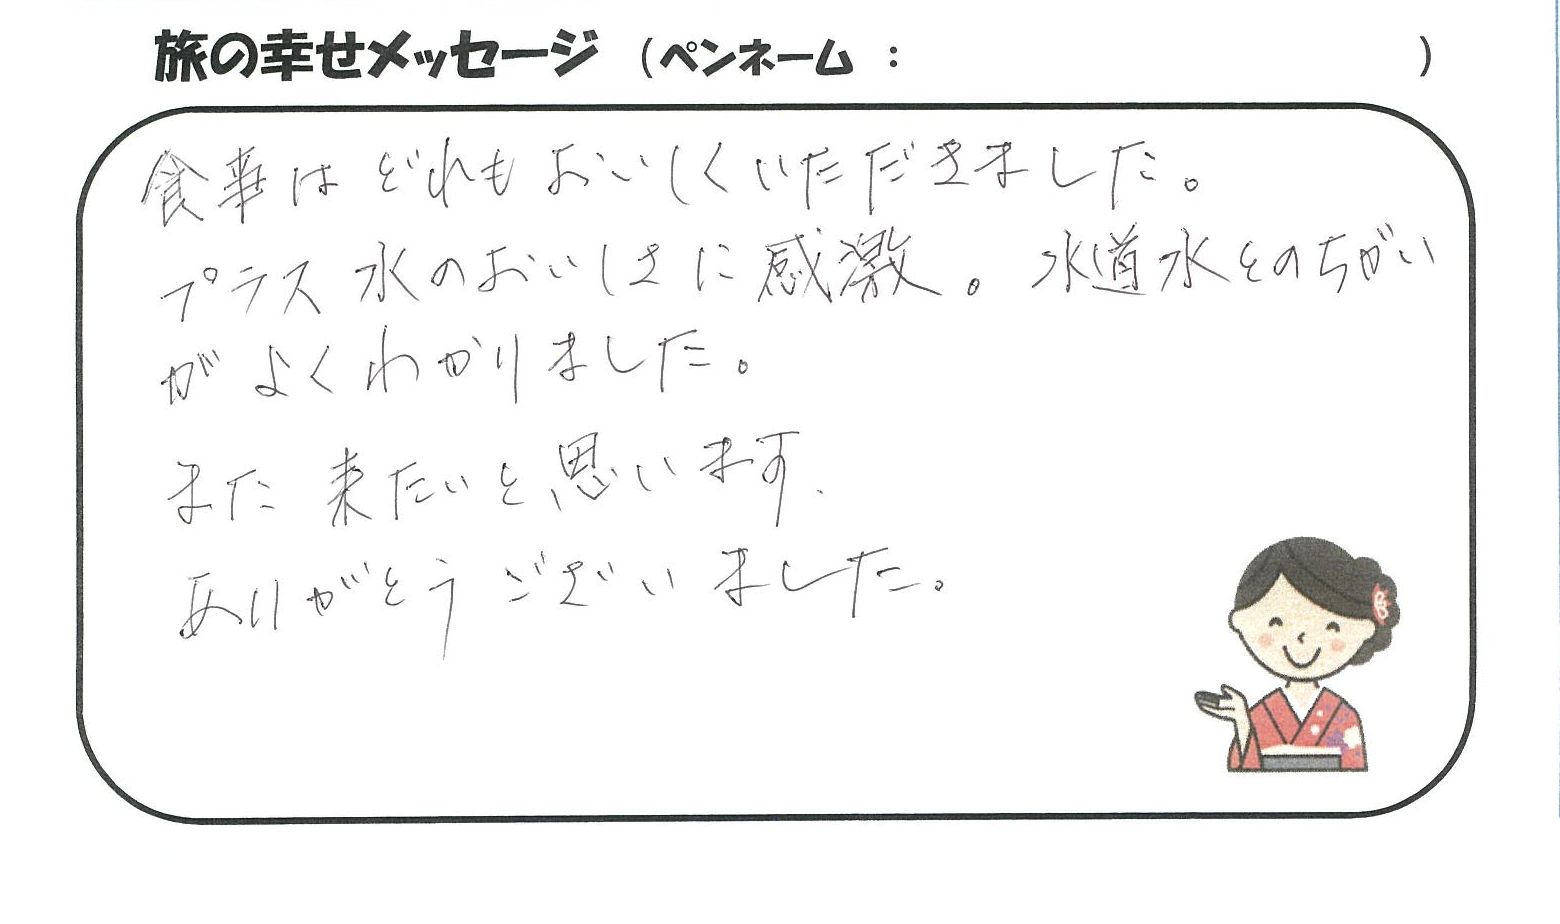 旅の幸せメッセージ （ペンネーム ： ）
食事はどれもおいしくいただきました。
プラス水のおいしさに感激。水道水とのちがい
がよくわかりました。
また来たいと思います.
ありがとうございました。